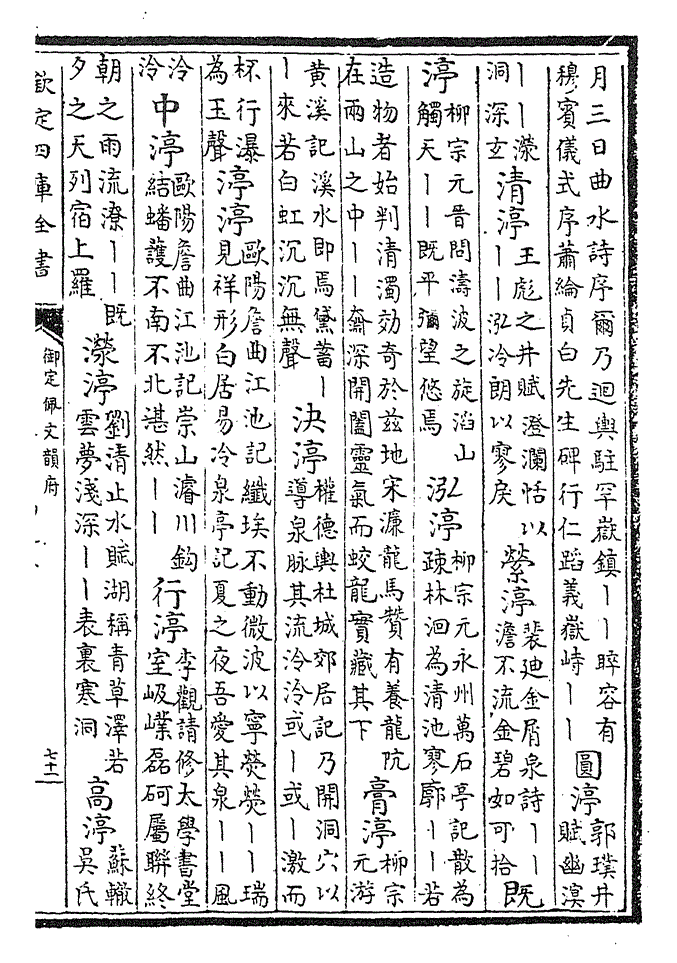 月三日曲水詩序爾乃迴輿駐罕嶽鎮丨丨睟容有
穆賓儀式序蕭綸貞白先生碑行仁蹈義嶽峙丨丨
圓渟
郭璞井
賦幽溟
丨丨濴
洞深玄
清渟
王彪之井賦澄瀾恬以
丨丨泓冷朗以寥戾
縈渟
裴廸金屑泉詩丨丨
澹不流金碧如可拾
既
渟
柳宗元晉問濤波之旋滔山
觸天丨丨既平彌望悠焉
泓渟
柳宗元永州萬石亭記散為
疎林洄為清池寥廓丨丨若
造物者始判清濁効奇於兹地宋濂龍馬贊有養龍阬
在兩山之中丨丨奫深開闔靈氣而蛟龍實藏其下
膏渟
柳宗
元游
黄溪記溪水即焉黛蓄丨
丨來若白虹沉沉無聲
決渟
權德輿杜城郊居記乃開洞穴以
導泉脉其流泠泠或丨或丨激而
杯行瀑
為玉聲
渟渟
歐陽詹曲江池記纖埃不動微波以寧熒熒丨丨瑞
見祥形白居易冷泉亭記夏之夜吾愛其泉丨丨風
泠
泠
中渟
歐陽詹曲江池記崇山濬川鈎
結蟠護不南不北湛然丨丨
行渟
李觀請修太學書堂
室岋嶫磊砢屬聯終
朝之雨流潦丨丨既
夕之天列宿上羅
濴渟
劉清止水賦湖稱青草澤若
雲夢淺深丨丨表裏寒洞
高渟
蘇轍
吳氏
欽定四庫全書
御定佩文韻府
七十二